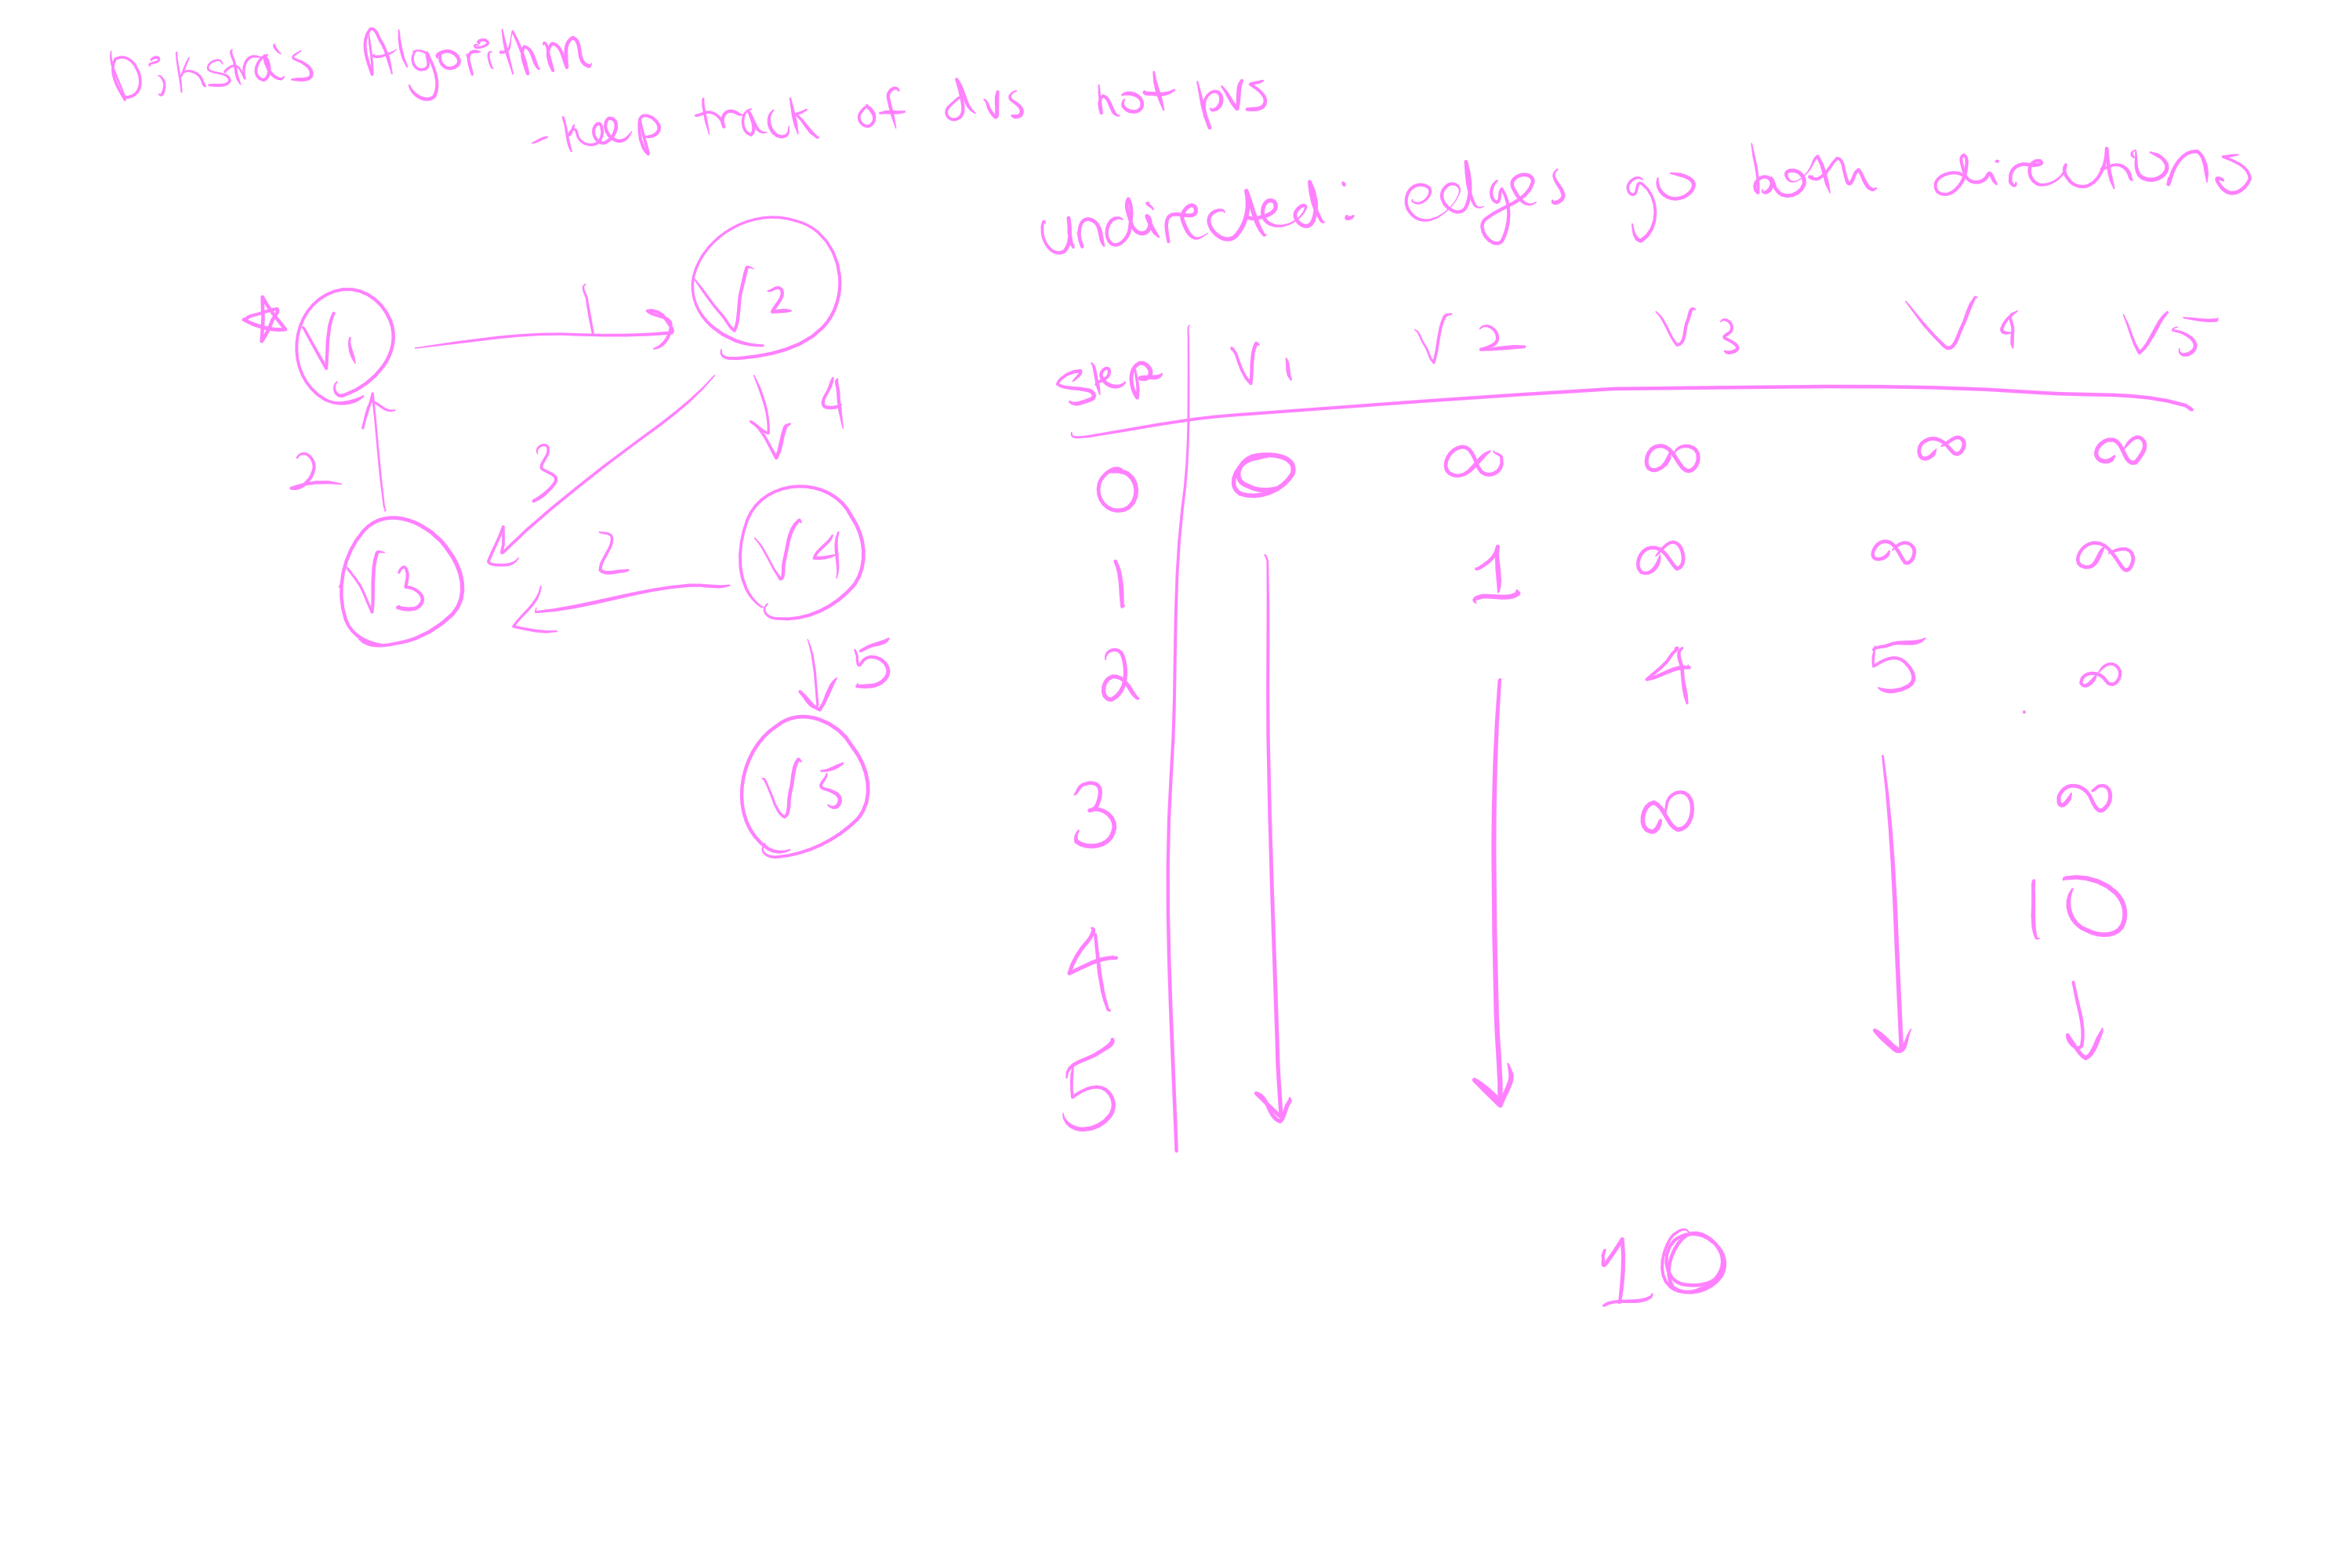 Dijkstra's Algorithm
- keep track of dvs not pvs
undirected: edges go both directions
V1 1 V2
4
2 3
V3 2 V4
5
V5
step V1 V2 V3 V4 V5
0 0 ∞ ∞ ∞ ∞
1 1 ∞ ∞ ∞
2 4 5 ∞
3 ∞ ∞
4 10
5
10